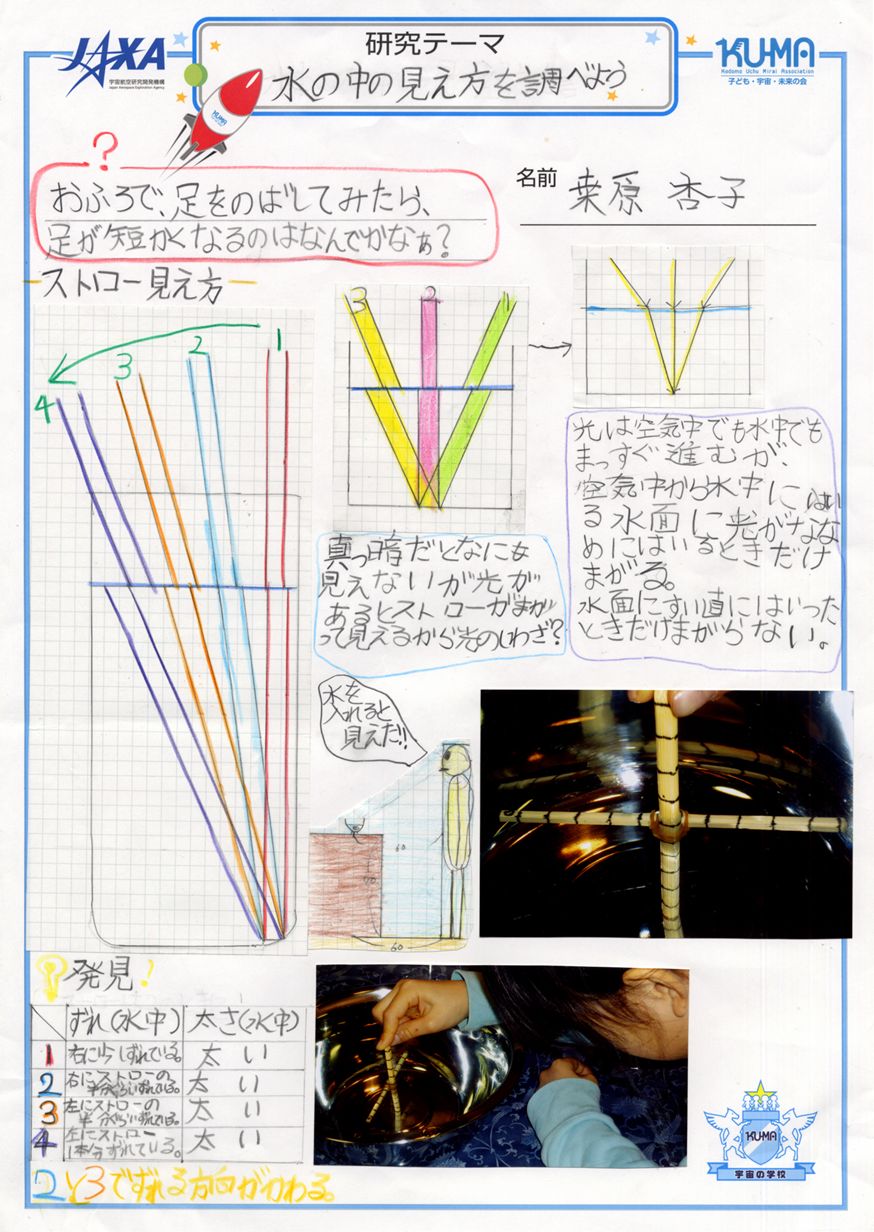 JAXA
宇宙航空研究開発機構
Japan Aerospace Exploration Agency
研究テーマ
水の中の見え方を調べよう
KU-MA
KU-MA
Kodomo Uchu Mirai Association
子ども・宇宙・未来の会
?
おふろで、足をのばしてみたら、
足が短かくなるのはなんでかなぁ?
名前 桒原 杏子
ストロー見え方
1
2
3
4
3 2 1
光は空気中でも水中でも
まっすぐ進むが、
空気中から水中にはい
る水面に光がなな
めにはいるときだけ
まがる。
水面にすい直にはいった
ときだけまがらない。
真っ暗だとなにも
見えないが光が
あるとストローがまが
って見えるから光のしわざ?
水を
入れると
見えた!!
60
60
発見!
ずれ(水中) 太さ(水中)
1 右に少しずれている。 太い
2 右にストローの
半分ぐらいずれている。 太い
3 左にストローの
半分ぐらいずれている。 太い
4 左にストロー
1本分ずれている。 太い
2と3でずれる方向がかわる。
KU-MA
宇宙の学校